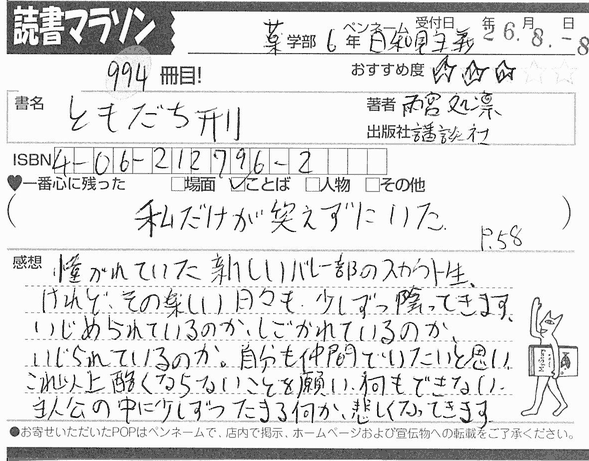 読書マラソン
薬学部 6年 ペンネーム 日和見主義 受付日 26年8月-8日
994冊目!
おすすめ度 ☆☆☆☆☆
書名 ともだち刑
著者 雨宮処凛
出版社 講談社
ISBN 4-06-212796-2
♥一番心に残った □場面 ☑ことば □人物 □その他
(私だけが笑えずにいた P.58)
感想 憧がれていた新しいバレー部のスカウト生、
けれど、その楽しい日々も、少しずつ陰ってきます。
いじめられているのか、しごかれているのか、
いじられているのか。自分も仲間でいたいと思い、
これ以上酷くならないことを願い、何もできない
主人公の中に少しずつたまる何か、悲しくなってきます。
●お寄せいただいたPOPはペンネームで、店内で掲示、ホームページおよび宣伝物への転載をご了承ください。